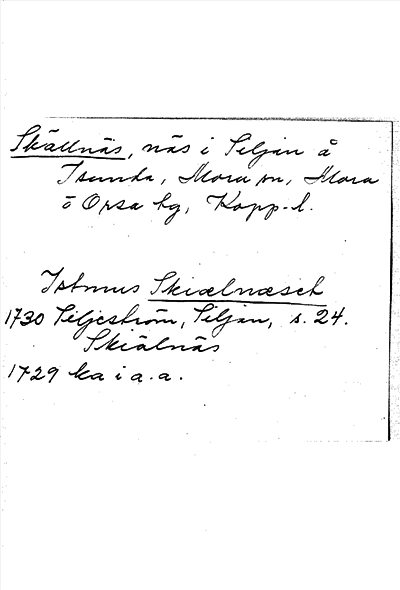 Skällnäs, näs i Siljan å
Isunda, Mora sn, Mora
o Orsa tg, Kopp. l.
Istmus Skiælnæset
1730 Siljeström, Siljan, s. 24.
Skiälnäs
1729 ka i a.a.